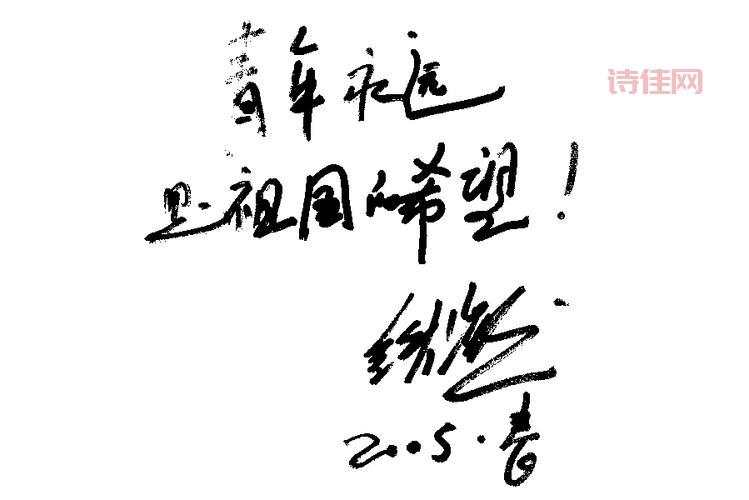 青年永远
是祖国的希望！
2005.春
诗佳网